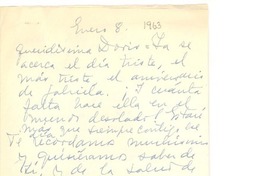 Enero 8. 1963
Queridísima Doris: Ya se
acerca el día triste, el
más triste, el aniversario
de Gabriela. ¡Y cuánta
falta hace ella en el
mundo desolado! Estaré
más que siempre contigo ese día
Te recordamos muchísimo
y quisiéramos saber de
ti, y de la salud de